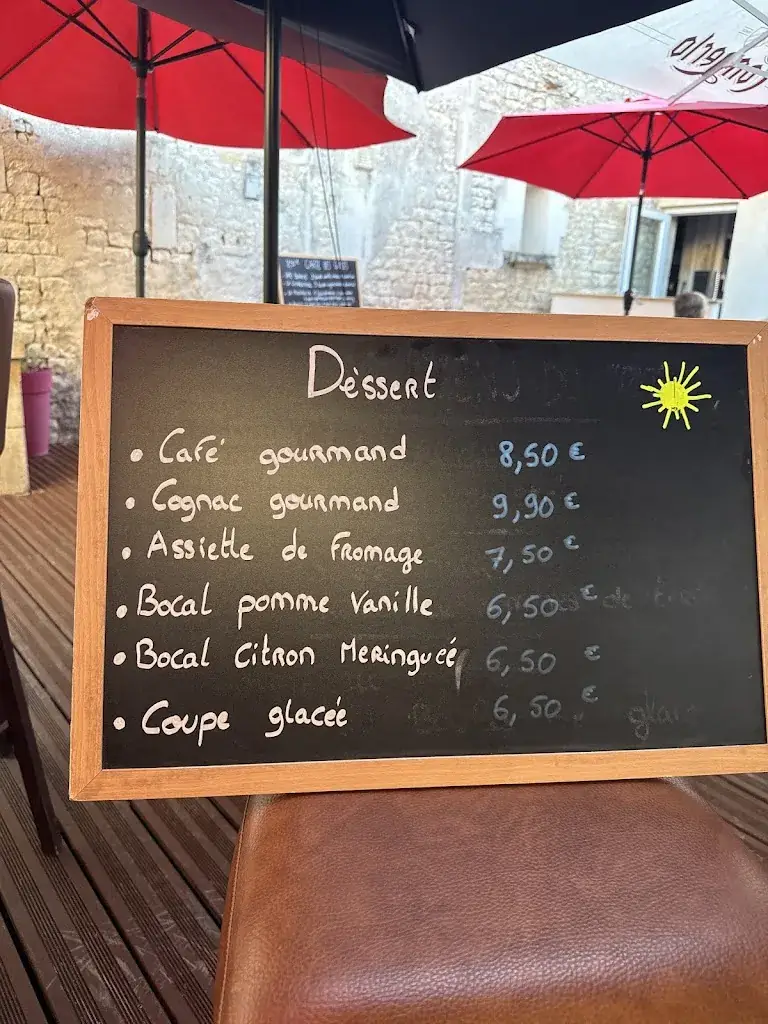 Dèssert
• Café gourmand 8,50 €
• Cognac gourmand 9,90 €
• Assiette de fromage 7,50 €
• Bocal pomme vanille 6,50 €
• Bocal citron Meringueé 6,50 €
• Coupe glaceé 6,50 €